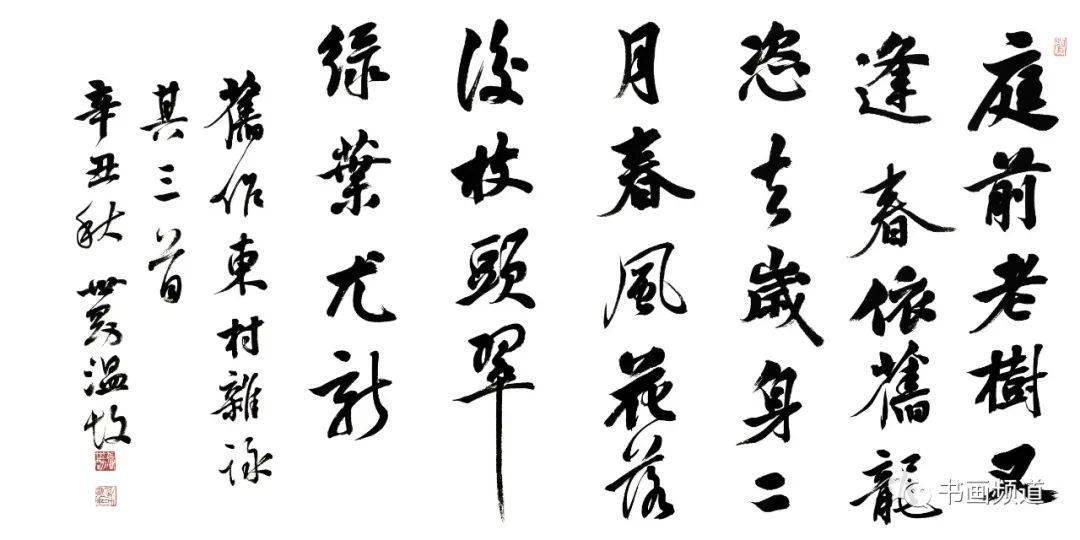 庭前老樹又
逢春依舊龍
恣去歲身二
月春風花落
後枝頭翠
綠葉尤新
舊作東村雜詠
其三首
辛丑秋世溫
书画频道